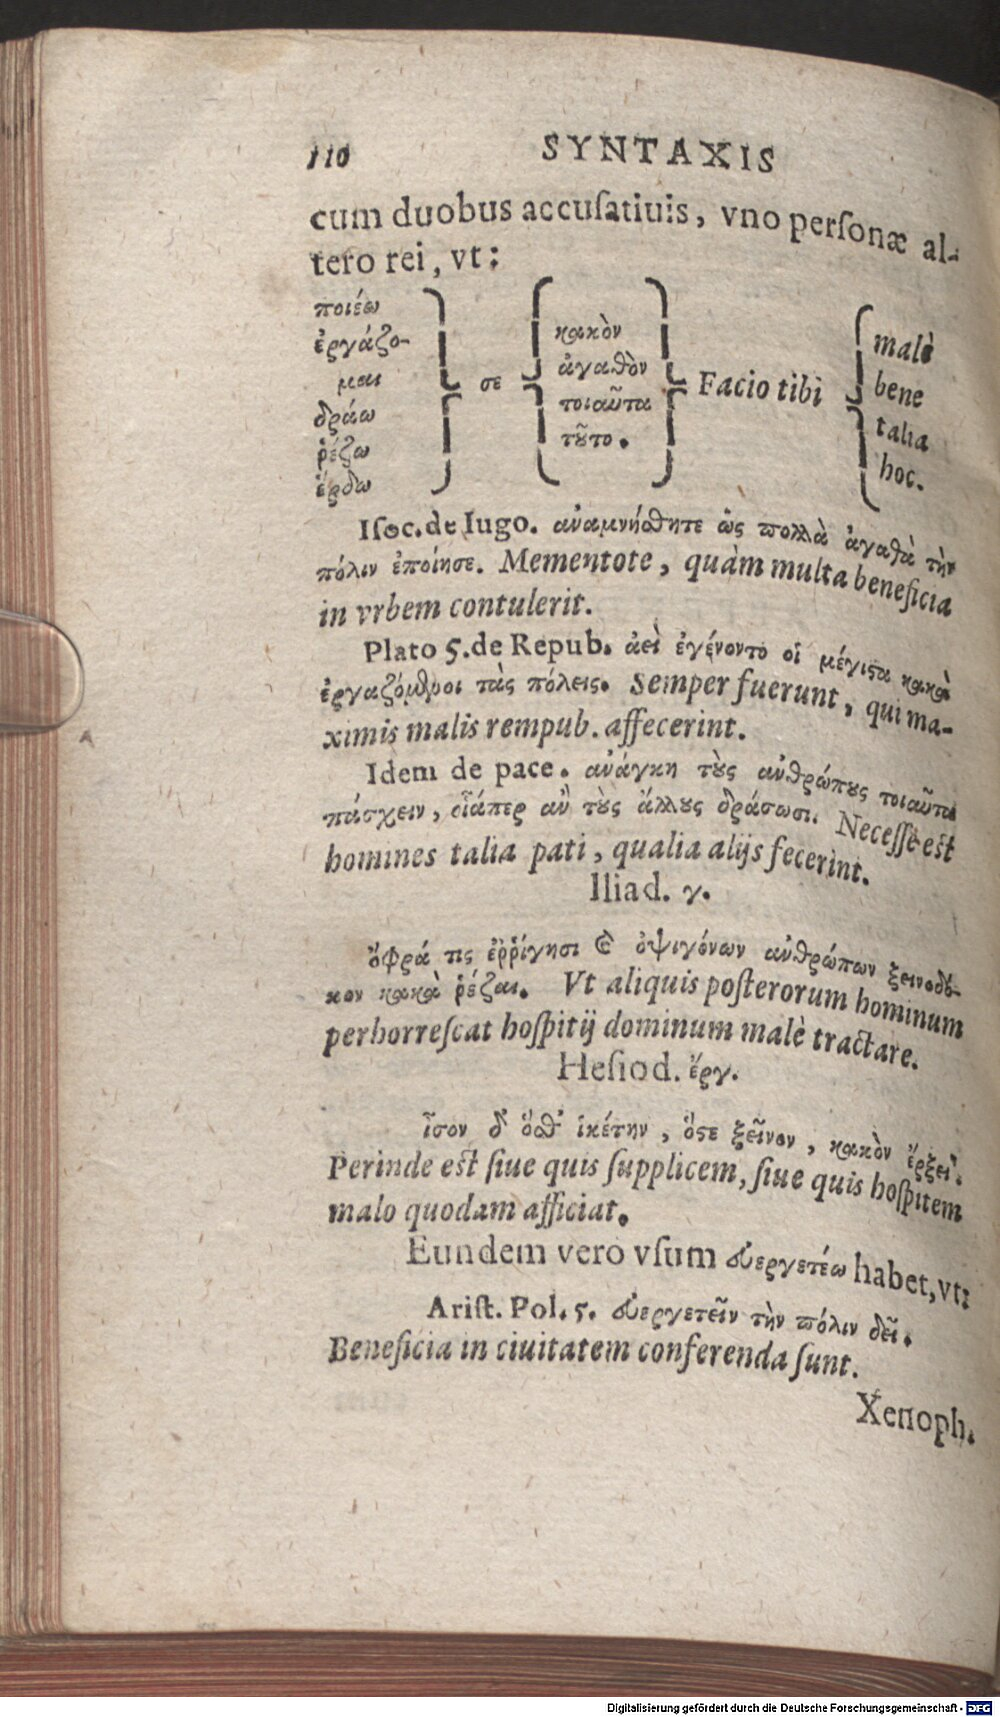 110 SYNTAXIS
cum duobus accuſatiuis, vno perſonæ al-
tero rei, vt:
ποιέω
ἐργάζο-
μαι
δράω
ῥέζω
ἔρδω
σε
κακὸν
ἀγαθὸν
τοιαῦτα
τȣ͂το.
Facio tibi
malè
bene
talia
hoc.
Iſoc. de Iugo. ἀναμνήσθητε ὡς πολλὰ ἀγαθὰ τὴν
πόλιν ἐποίησε. Mementote, quàm multa beneficia
in vrbem contulerit.
Plato 5. de Repub. ἀεὶ ἐγένοντο οἱ μέγιϛα κακὰ
ἐργαζόμενοι τὰς πόλεις. Semper fuerunt, qui ma-
ximis malis rempub. affecerint.
Idem de pace. ἀνάγκη τȣ̀ς ἀνθρώπȣς τοιαῦτα
πάσχειν, οἷάπερ ἂν τȣ̀ς ἄλλȣς δράσωσι. Neceſſe est
homines talia pati, qualia alijs fecerint.
Iliad. γ.
ὄφρά τις ἐῤῥίγησι καὶ ὀψιγόνων ἀνθρώπων ξεινοδό-
κον κακὰ ῥέξαι. Vt aliquis poſterorum hominum
perhorreſcat hoſpitij dominum malè tractare.
Heſiod. ἔργ.
ἶσον δ' ὅσθ' ἱκέτην, ὅϛε ξεῖνον, κακὸν ἔρξει.
Perinde eſt ſiue quis ſupplicem, ſiue quis hoſpitem
malo quodam afficiat.
Eundem vero vſum ευεργετέω habet, vt:
Ariſt. Pol. 5. ευεργετεῖν τὴν πόλιν δεῖ.
Beneficia in ciuitatem conferenda ſunt.
Xenoph.
Digitalisierung gefördert durch die Deutsche Forschungsgemeinschaft - DFG